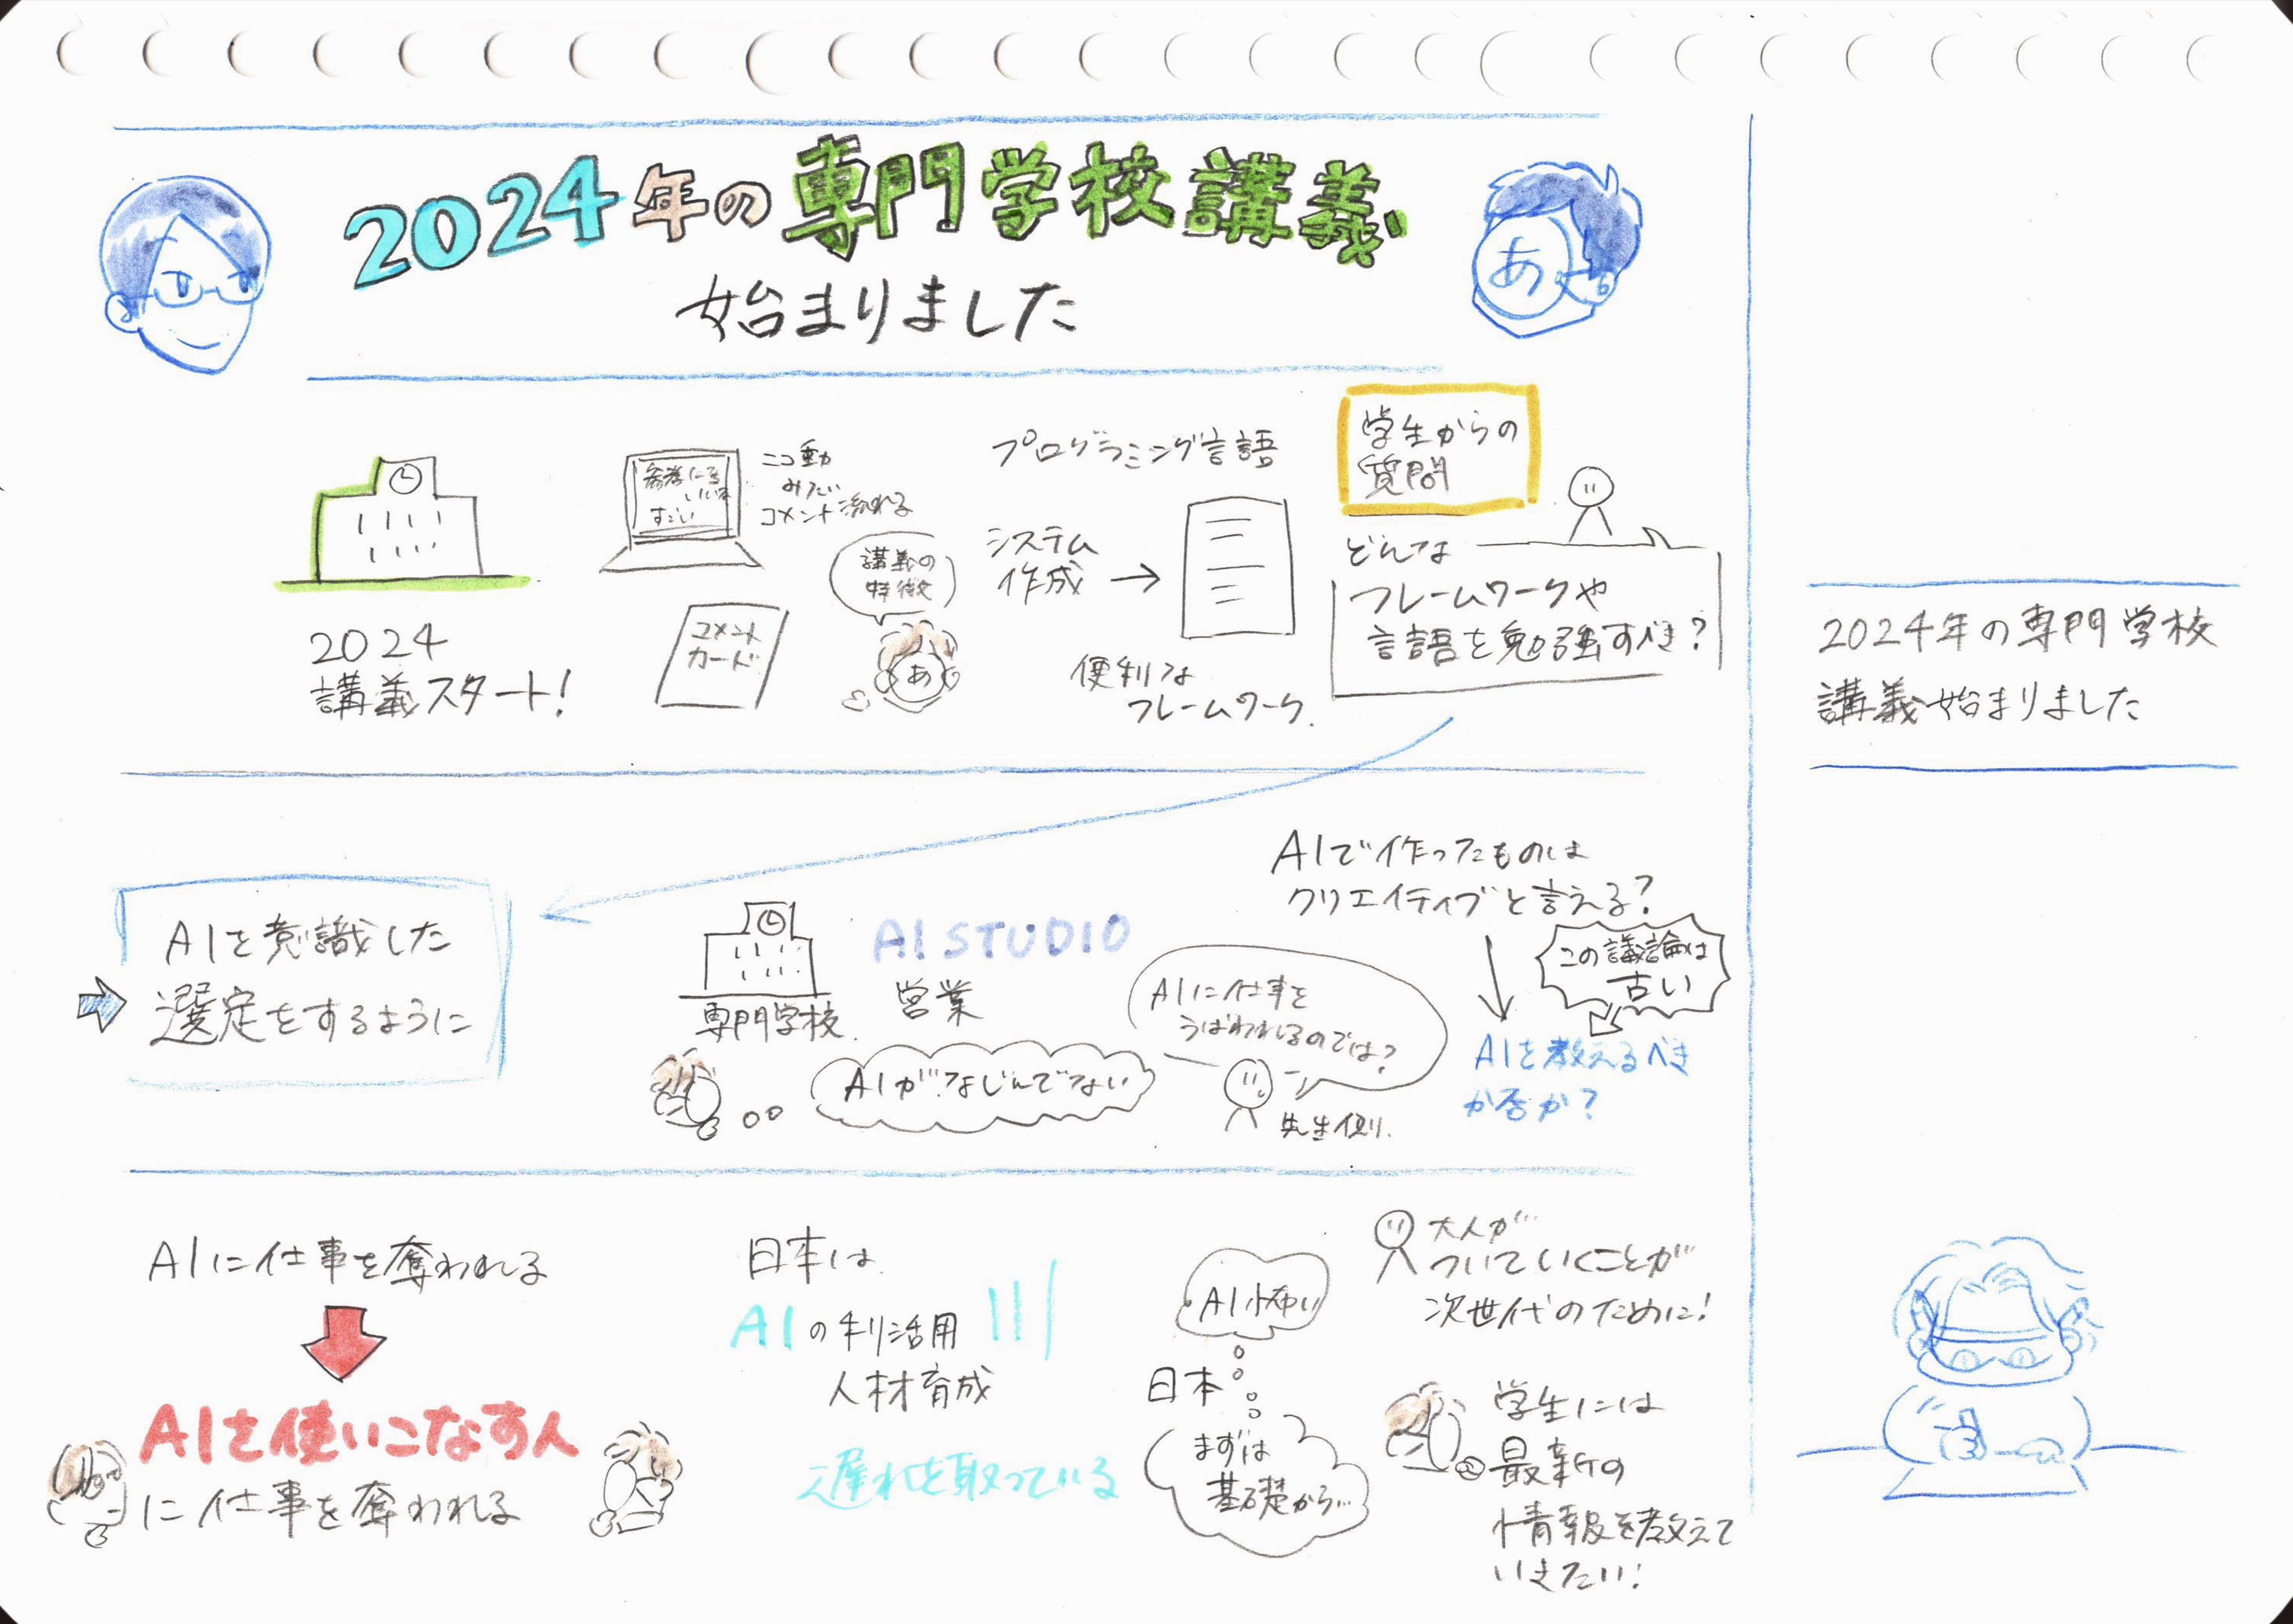 2024年の専門学校講義、
始まりました
あ
2024
講義スタート!
参考になる
いいね
すごい
ニコ動
みたい
コメント流れる
コメント
カード
講義の
特徴
あ
プログラミング言語
システム
作成
便利な
フレームワーク.
学生からの
質問
どんな
フレームワークや
言語を勉強すべき?
AIを意識した
選定をするように
専門学校.
AI STUDIO
営業
AIがなじんでない
AIに仕事を
うばわれるのでは?
先生側.
AIで作ったものは
クリエイティブと言える?
この議論は
古い
AIを教えるべき
か否か?
AIに仕事を奪われる
AIを使いこなす人
に仕事を奪われる
日本は
AIの利活用
人材育成
遅れを取っている
AI怖い
日本
まずは
基礎から…
大人が
ついていくことが
次世代のために!
学生には
最新の
情報を教えて
いきたい!
2024年の専門学校
講義始まりました